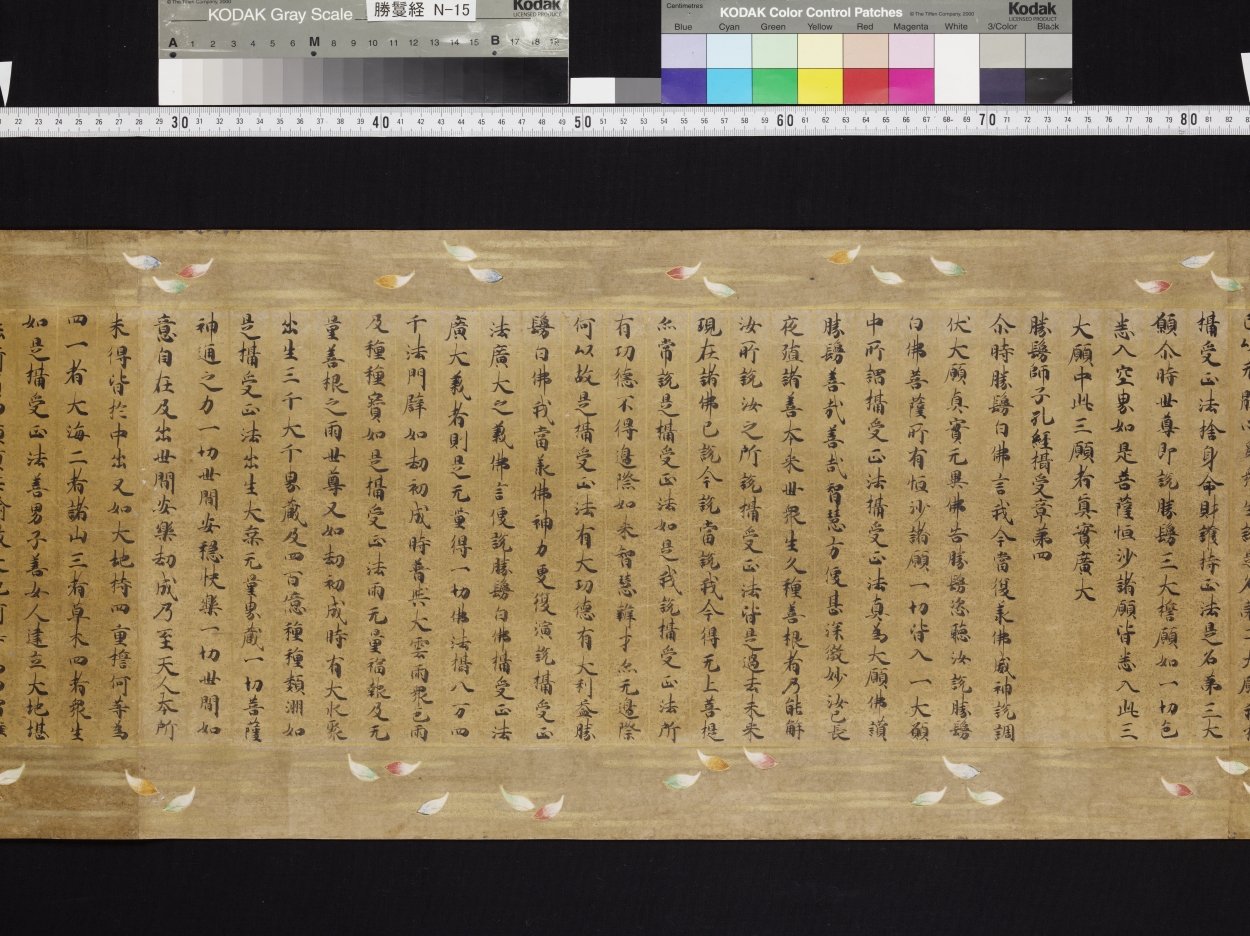 KODAK Gray Scale
勝鬘経 N-15
Kodak
LICENSED PRODUCT
© The Tiffen Company, 2000
A 1 2 3 4 5 6 M 8 9 10 11 12 13 14 15 B 17 18 19
Centimetres
KODAK Color Control Patches
© The Tiffen Company, 2000
Kodak
LICENSED PRODUCT
Blue Cyan Green Yellow Red Magenta White 3/Color Black
22 23 24 25 26 27 28 29 30 31 32 33 34 35 36 37 38 39 40 41 42 43 44 45 46 47 48 49 50 51 52 53 54 55 56 57 58 59 60 61 62 63 64 65 66 67 68 69 70 71 72 73 74 75 76 77 78 79 80 81 82
攝受正法捨身命財護持正法是名第三大
願尒時世尊即說勝鬘三大擔願如一切色
悉入空界如是菩薩恒沙諸願皆悉入此三
大願中此三願者真實廣大
勝鬘師子吼經攝受章第四
尒時勝鬘白佛言我今當復承佛威神說調
伏大願真實无異佛告勝鬘恣聽汝說勝鬘
白佛菩薩所有恒沙諸願一切皆入一大願
中所謂攝受正法攝受正法真為大願佛讚
勝鬘善哉善哉智慧方便甚深微妙汝已長
夜殖諸善本來世衆生久種善根者乃能解
汝所說汝之所說攝受正法皆是過去未來
現在諸佛已說今說當說我今得无上菩提
亦常說是攝受正法如是我說攝受正法所
有功德不得邊際如來智慧辯才亦无邊際
何以故是攝受正法有大功德有大利益勝
鬘白佛我當承佛神力更復演說攝受正
法廣大之義佛言便說勝鬘白佛攝受正法
廣大義者則是无量得一切佛法攝八万四
千法門辟如劫初成時普興大雲雨衆色雨
及種種寶如是攝受正法雨无量福報及无
量善根之雨世尊又如劫初成時有大水聚
出生三千大千界藏及四百億種種類洲如
是攝受正法出生大乘无量界藏一切菩薩
神通之力一切世間安穩快樂一切世間如
意自在及出世間安樂劫成乃至天人本所
未得皆於中出又如大地持四重擔何等為
四一者大海二者諸山三者草木四者衆生
如是攝受正法善男子善女人建立大地堪